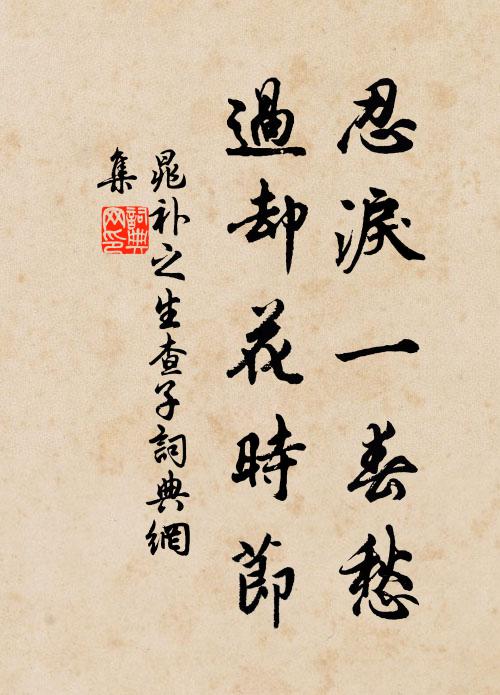 忍淚一春愁
過却花時節
晁补之生查子詞典網
集
詞典网印